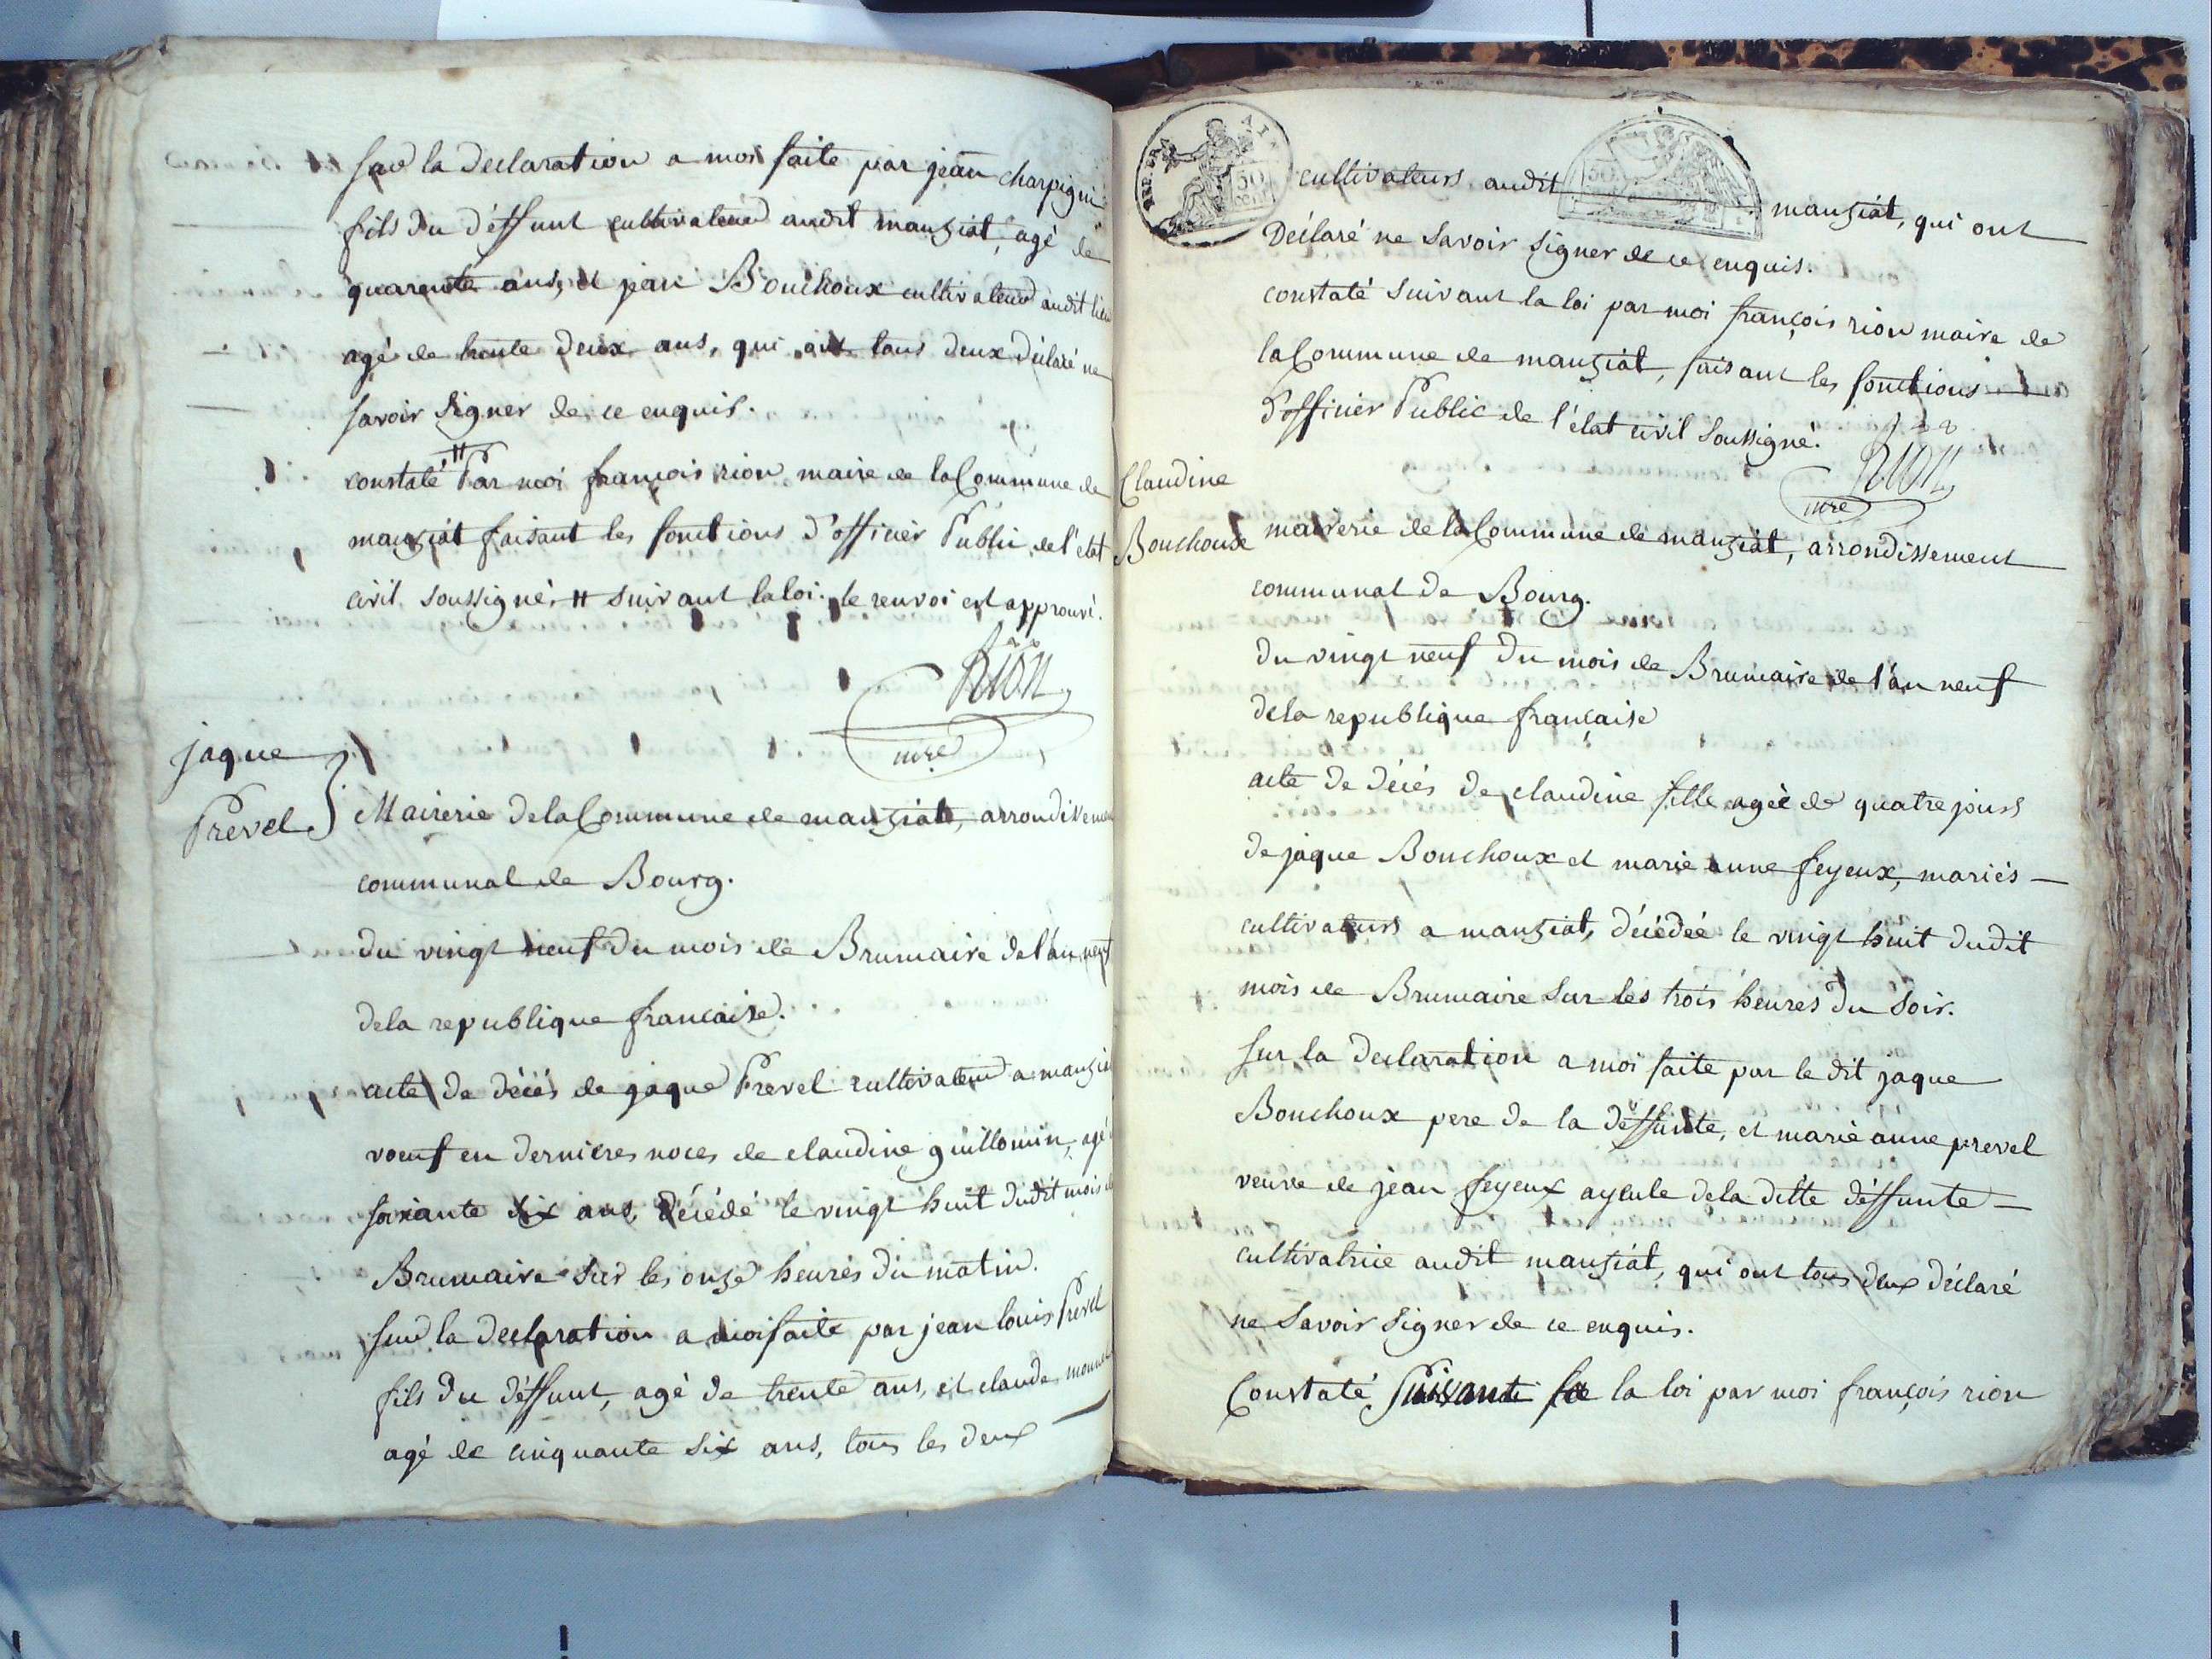 sur la declaration a moi faite par jean charpigni
fils du déffunt cultivateur audit manziat, agé de
quarente ans, et jean Bouchoux cultivateur audit lieu
agé de trente deux ans, qui ont tous deux déclaré ne
savoir signer de ce enquis.
constaté, # Par moi françois rion maire de la Commune de
manziat faisant les fonctions d'officier Public de l'etat
civil soussigné, # suivant la loi. le renvoi est approuvé.
Rion
mre
jaque
Prevel
Mairerie de la Commune de manziat, arrondisement
communal de Bourg.
du vingt neuf du mois de Brumaire de l'an neuf
de la republique francaise.
acte de décés de jaque Prevel cultivateur a manziat
voeuf en dernieres noces de claudine guillomin, agé
soixante six ans, décédé le vingt huit dudit mois de
Brumaire sur les onze heures du matin.
sur la declaration a moi faite par jean louis Prevel
fils du déffunt, agé de trente ans, et claude
agé de cinquante six ans, tous les deux
cultivateurs audit manziat, qui ont
Déclaré ne savoir signer de ce enquis.
constaté suivant la loi par moi françois rion maire de
la Commune de manziat, faisant les fonctions
d'officier Public de l'état civil soussigné.
Rion
mre
Claudine
Bouchoux
mairerie de la Commune de manziat, arrondissement
communal de Bourg.
du vingt neuf du mois de Brumaire de l'an neuf
de la republique française
acte de décés de claudine fille agée de quatre jours
de jaque Bouchoux et marie anne feyeux, mariés
cultivateurs a manziat, décédée le vingt huit dudit
mois de Brumaire sur les trois heures du soir.
sur la declaration a moi faite par le dit jaque
Bouchoux pere de la déffunte, et marie anne prevel
veuve de jean feyeux ayeule de la ditte déffunte
cultivatrice audit manziat, qui ont tous deux déclaré
ne savoir signer de ce enquis.
Constaté suivant la loi par moi françois rion